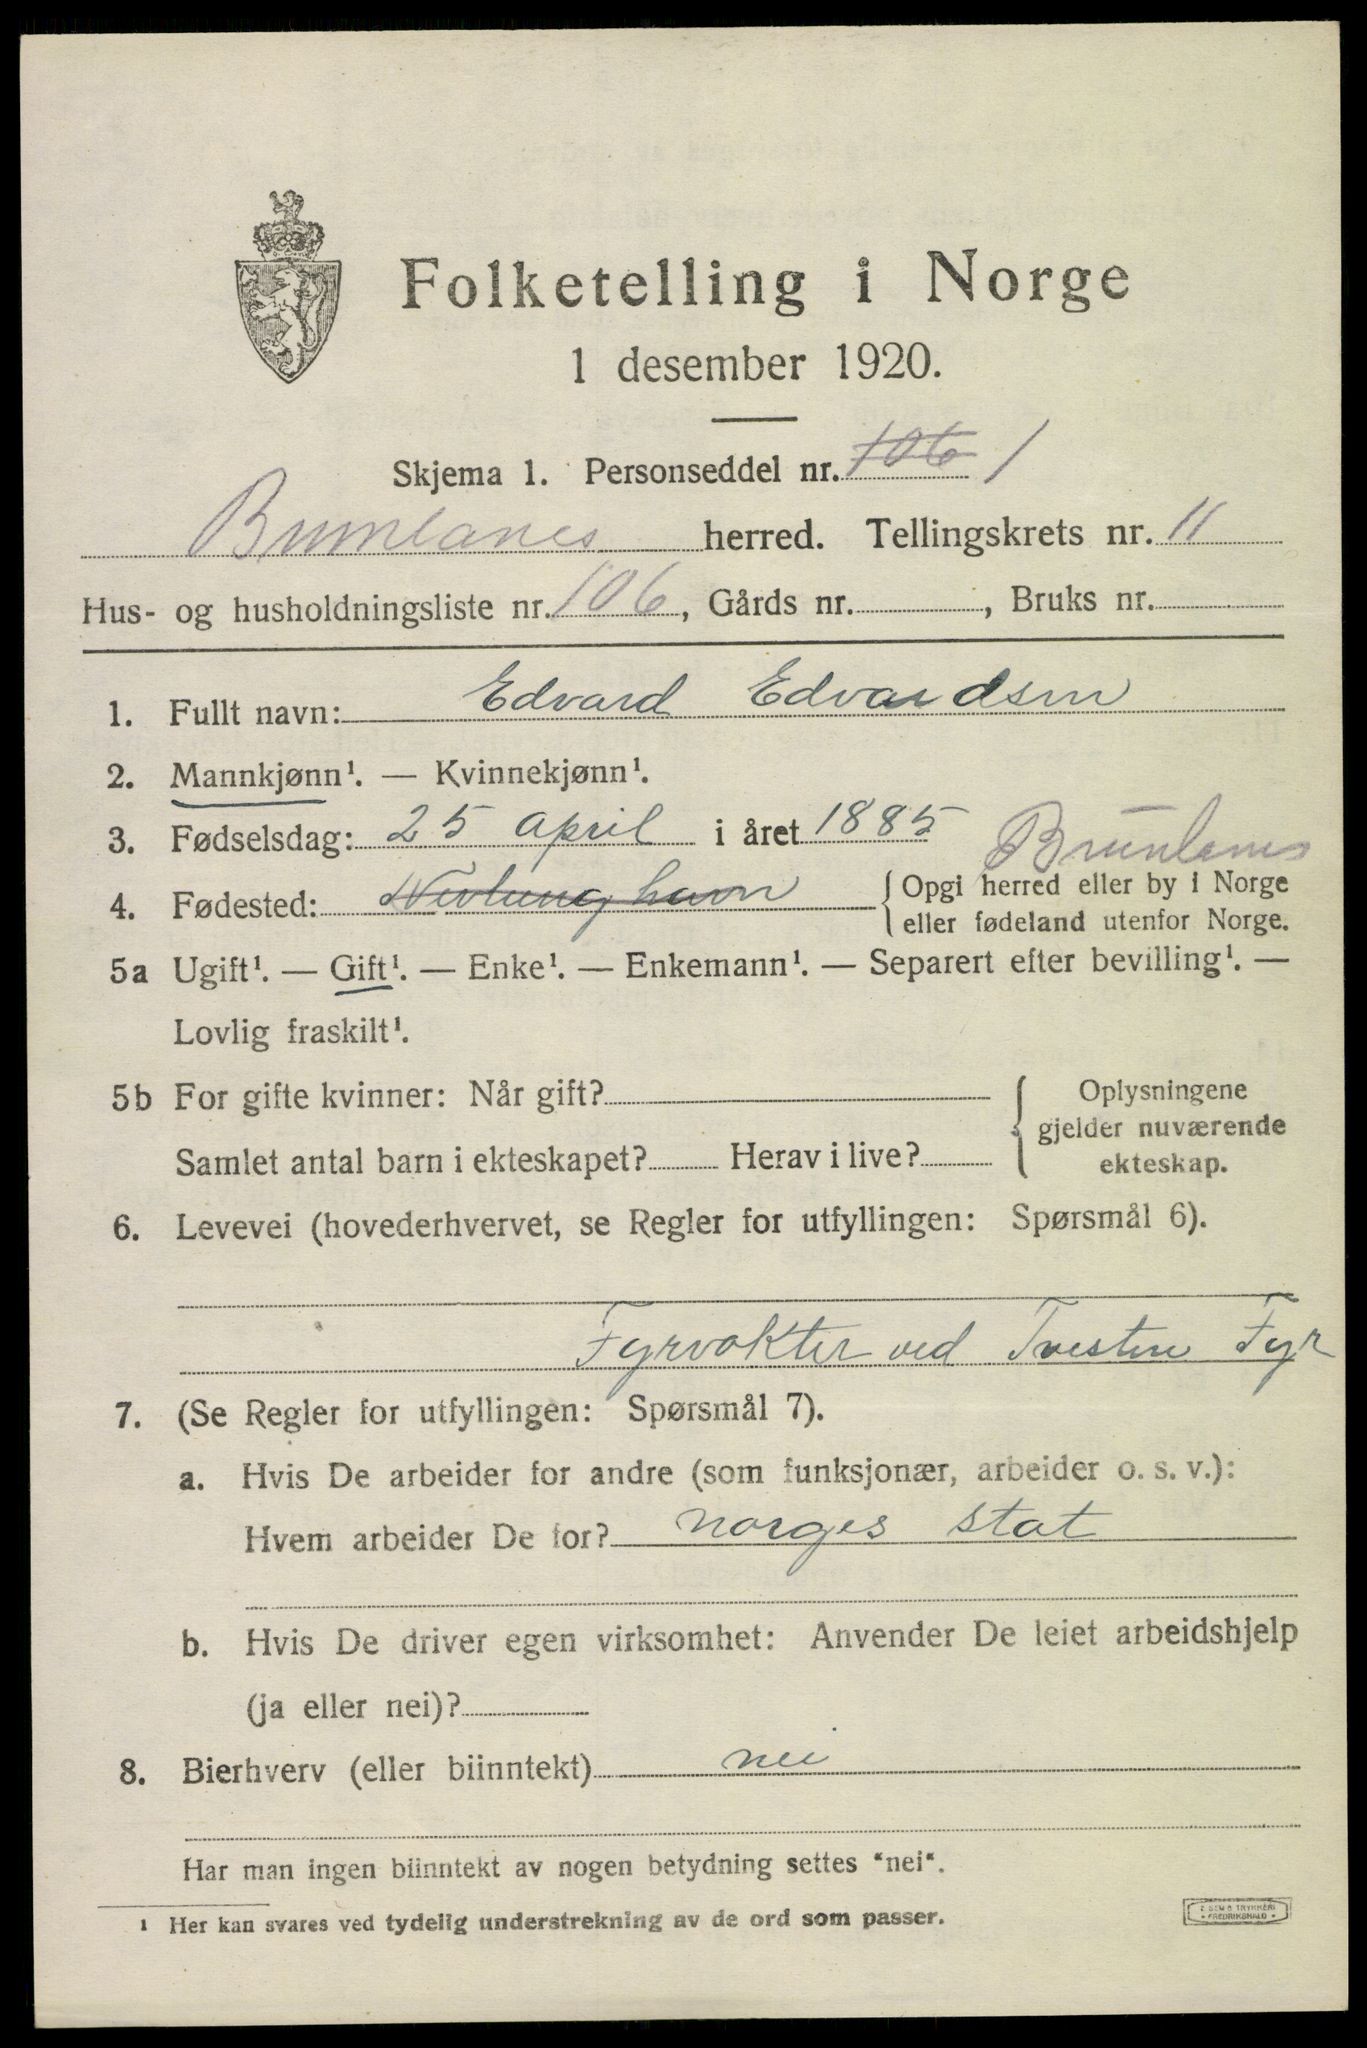 Folketelling i Norge
1 desember 1920.
Skjema 1. Personseddel nr. 106 1
Brunlanes herred. Tellingskrets nr. 11
Hus- og husholdningsliste nr. 106, Gårds nr. , Bruks nr.
1. Fullt navn: Edvard Edvardsen
2. Mannkjønn¹. — Kvinnekjønn¹.
3. Fødselsdag: 25 april i året 1885 Brunlanes
4. Fødested: Nevlunghavn { Opgi herred eller by i Norge
eller fødeland utenfor Norge.
5a Ugift¹. — Gift¹. — Enke¹. — Enkemann¹. — Separert efter bevilling¹. —
Lovlig fraskilt¹.
5b For gifte kvinner: Når gift? { Oplysningene
gjelder nuværende
Samlet antal barn i ekteskapet? Herav i live? ekteskap.
6. Levevei (hovederhvervet, se Regler for utfyllingen: Spørsmål 6).
Fyrvokter ved Tvesten Fyr
7. (Se Regler for utfyllingen: Spørsmål 7).
a. Hvis De arbeider for andre (som funksjonær, arbeider o. s. v.):
Hvem arbeider De for? norges stat
b. Hvis De driver egen virksomhet: Anvender De leiet arbeidshjelp
(ja eller nei)?
8. Bierhverv (eller biinntekt) nei
Har man ingen biinntekt av nogen betydning settes "nei".
1 Her kan svares ved tydelig understrekning av de ord som passer.
E. SEM'S TRYKKERI
FREDRIKSHALD